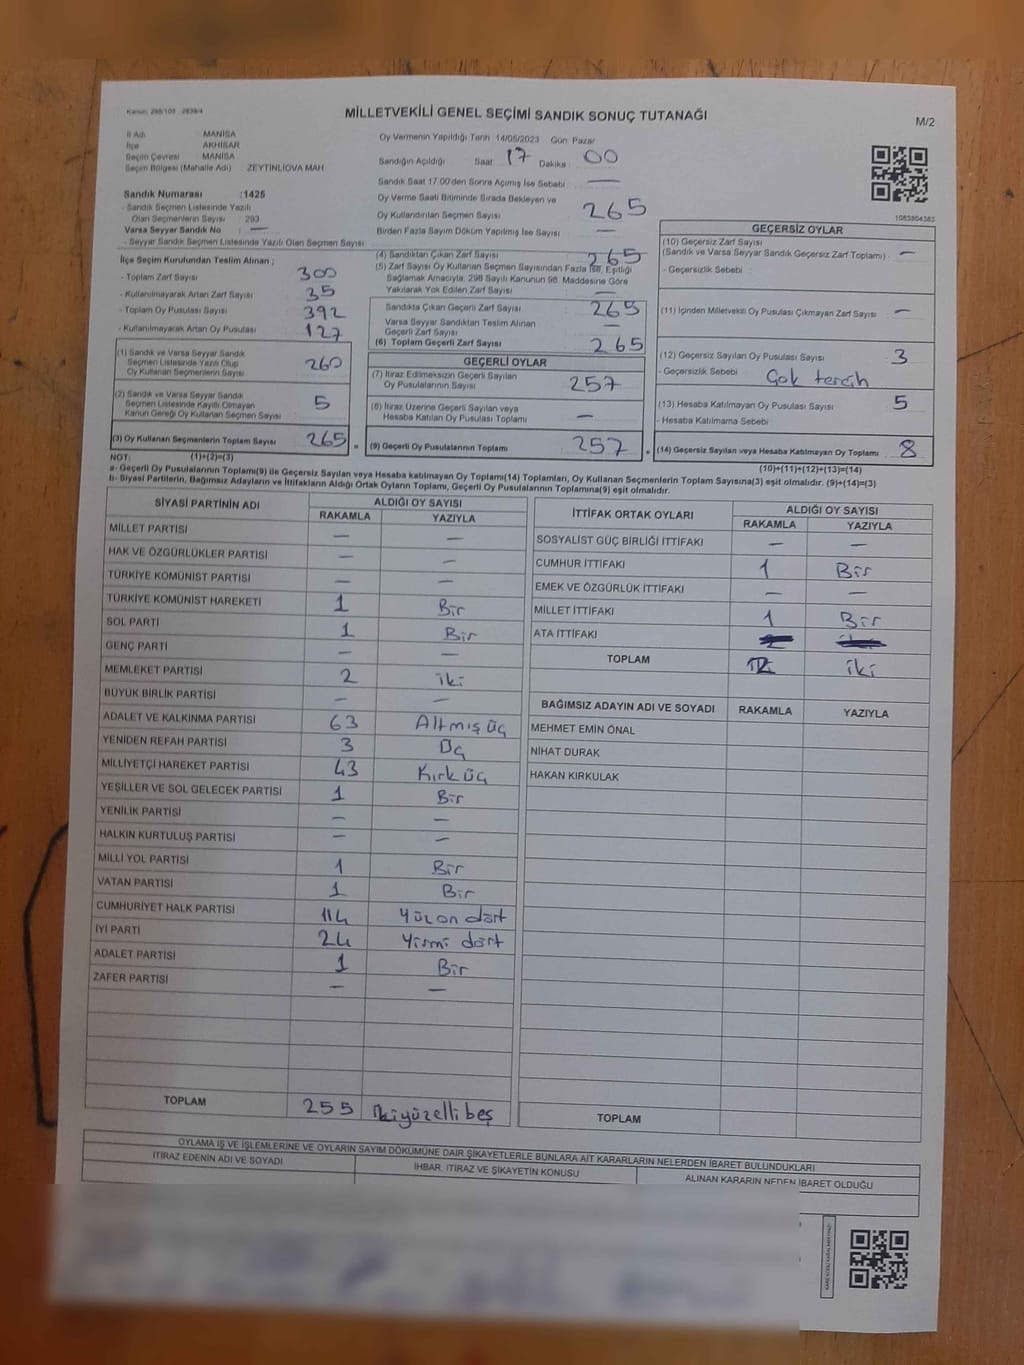 Kanun: 298/105 , 2839/4
MİLLETVEKİLİ GENEL SEÇİMİ SANDIK SONUÇ TUTANAĞI
M/2
İl Adı MANİSA
İlçe AKHİSAR
Seçim Çevresi MANİSA
Seçim Bölgesi (Mahalle Adı) : ZEYTİNLİOVA MAH.
Oy Vermenin Yapıldığı Tarih 14/05/2023 Gün: Pazar
Sandığın Açıldığı Saat 17 Dakika : 00
Sandık Saat 17.00'den Sonra Açımış İse Sebebi : —
Oy Verme Saati Bitiminde Sırada Bekleyen ve
Oy Kullandırılan Seçmen Sayısı 265
Birden Fazla Sayım Döküm Yapılmış İse Sayısı —
1083804383
Sandık Numarası :1425
- Sandık Seçmen Listesinde Yazılı
Olan Seçmenlerin Sayısı : 293
Varsa Seyyar Sandık No : —
- Seyyar Sandık Seçmen Listesinde Yazılı Olan Seçmen Sayısı
İlçe Seçim Kurulundan Teslim Alınan ;
- Toplam Zarf Sayısı : 300
- Kullanılmayarak Artan Zarf Sayısı : 35
- Toplam Oy Pusulası Sayısı : 392
- Kullanılmayarak Artan Oy Pusulası : 127
(1) Sandık ve Varsa Seyyar Sandık
Seçmen Listesinde Yazılı Olup
Oy Kullanan Seçmenlerin Sayısı : 260
(2) Sandık ve Varsa Seyyar Sandık
Seçmen Listesinde Kayıtlı Olmayan
Kanun Gereği Oy Kullanan Seçmen Sayısı : 5
(3) Oy Kullanan Seçmenlerin Toplam Sayısı : 265
(4) Sandıktan Çıkan Zarf Sayısı : 265
(5) Zarf Sayısı Oy Kullanan Seçmen Sayısından Fazla İse, Eşitliği
Sağlamak Amacıyla, 298 Sayılı Kanunun 98. Maddesine Göre
Yakılarak Yok Edilen Zarf Sayısı : —
Sandıkta Çıkan Geçerli Zarf Sayısı : 265
Varsa Seyyar Sandıktan Teslim Alınan
Geçerli Zarf Sayısı : —
(6) Toplam Geçerli Zarf Sayısı : 265
GEÇERLİ OYLAR
(7) İtiraz Edilmeksizin Geçerli Sayılan
Oy Pusulalarının Sayısı : 257
(8) İtiraz Üzerine Geçerli Sayılan veya
Hesaba Katılan Oy Pusulaları Toplamı : —
(9) Geçerli Oy Pusulalarının Toplamı : 257
GEÇERSİZ OYLAR
(10) Geçersiz Zarf Sayısı
(Sandık ve Varsa Seyyar Sandık Geçersiz Zarf Toplamı) : —
- Geçersizlik Sebebi :
(11) İçinden Milletvekili Oy Pusulası Çıkmayan Zarf Sayısı : —
(12) Geçersiz Sayılan Oy Pusulası Sayısı : 3
- Geçersizlik Sebebi : Çok tercih
(13) Hesaba Katılmayan Oy Pusulası Sayısı : 5
- Hesaba Katılmama Sebebi :
(14) Geçersiz Sayılan veya Hesaba Katılmayan Oy Toplamı : 8
NOT: (1)+(2)=(3)
(10)+(11)+(12)+(13)=(14)
a- Geçerli Oy Pusulalarının Toplamı(9) ile Geçersiz Sayılan veya Hesaba katılmayan Oy Toplamı(14) Toplamları, Oy Kullanan Seçmenlerin Toplam Sayısına(3) eşit olmalıdır. (9)+(14)=(3)
b- Siyasi Partilerin, Bağımsız Adayların ve İttifakların Aldığı Ortak Oyların Toplamı, Geçerli Oy Pusulalarının Toplamına(9) eşit olmalıdır.
SİYASİ PARTİNİN ADI ALDIĞI OY SAYISI
RAKAMLA YAZIYLA
MİLLET PARTİSİ — —
HAK VE ÖZGÜRLÜKLER PARTİSİ — —
TÜRKİYE KOMÜNİST PARTİSİ — —
TÜRKİYE KOMÜNİST HAREKETİ 1 Bir
SOL PARTİ 1 Bir
GENÇ PARTİ — —
MEMLEKET PARTİSİ 2 iki
BÜYÜK BİRLİK PARTİSİ — —
ADALET VE KALKINMA PARTİSİ 63 Altmış üç
YENİDEN REFAH PARTİSİ 3 Üç
MİLLİYETÇİ HAREKET PARTİSİ 43 Kırk üç
YEŞİLLER VE SOL GELECEK PARTİSİ 1 Bir
YENİLİK PARTİSİ — —
HALKIN KURTULUŞ PARTİSİ — —
MİLLİ YOL PARTİSİ 1 Bir
VATAN PARTİSİ 1 Bir
CUMHURİYET HALK PARTİSİ 114 Yüz on dört
İYİ PARTİ 24 Yirmi dört
ADALET PARTİSİ 1 Bir
ZAFER PARTİSİ — —
TOPLAM 255 İkiyüzelli beş
İTTİFAK ORTAK OYLARI ALDIĞI OY SAYISI
RAKAMLA YAZIYLA
SOSYALİST GÜÇ BİRLİĞİ İTTİFAKI — —
CUMHUR İTTİFAKI 1 Bir
EMEK VE ÖZGÜRLÜK İTTİFAKI — —
MİLLET İTTİFAKI 1 Bir
ATA İTTİFAKI
TOPLAM iki
BAĞIMSIZ ADAYIN ADI VE SOYADI RAKAMLA YAZIYLA
MEHMET EMİN ÖNAL
NİHAT DURAK
HAKAN KIRKULAK
TOPLAM
OYLAMA İŞ VE İŞLEMLERİNE VE OYLARIN SAYIM DÖKÜMÜNE DAİR ŞİKAYETLERLE BUNLARA AİT KARARLARIN NELERDEN İBARET BULUNDUKLARI
İTİRAZ EDENİN ADI VE SOYADI İHBAR, İTİRAZ VE ŞİKAYETİN KONUSU ALINAN KARARIN NEDEN İBARET OLDUĞU